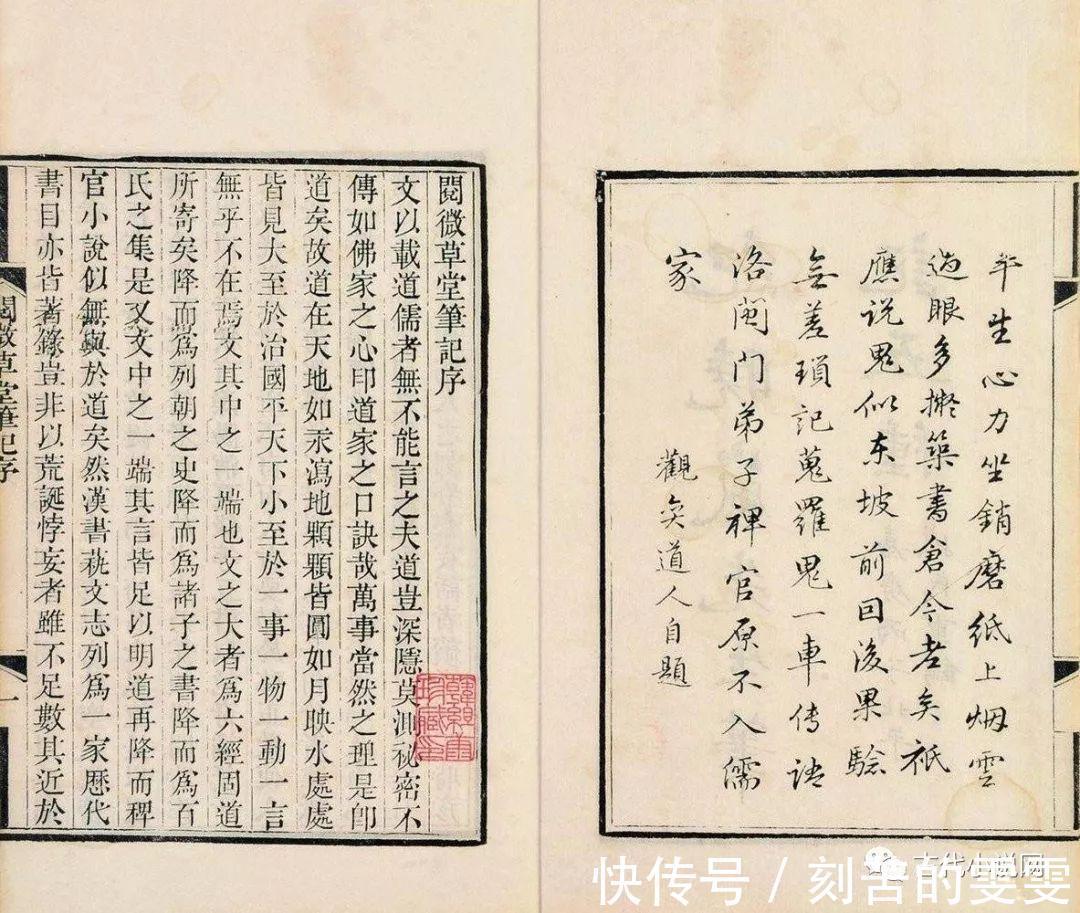 平生心力坐銷磨紙上烟雲
過眼多擬築書倉今老矣祇
應说鬼似东坡前因後果驗
無差瑣記蒐羅鬼一車传語
洛閩门弟子稗官原不入儒
家
觀奕道人自題
閱微草堂筆記序
文以載道儒者無不能言之夫道豈深隱莫測秘密不
傳如佛家之心印道家之口訣哉萬事當然之理是卽
道矣故道在天地如汞瀉地顆顆皆圓如月映水處處
皆見大至於治國平天下小至於一事一物一動一言
無乎不在焉文其中之一端也文之大者爲六經固道
所寄矣降而爲列朝之史降而爲諸子之書降而爲百
氏之集是又文中之一端其言皆足以明道再降而稗
官小說似無與於道矣然漢書蓺文志列爲一家歷代
書目亦皆著錄豈非以荒誕悖妄者雖不足數其近於
閱微草堂筆記序
一
古代小说网
快传号/刻苦的雯雯